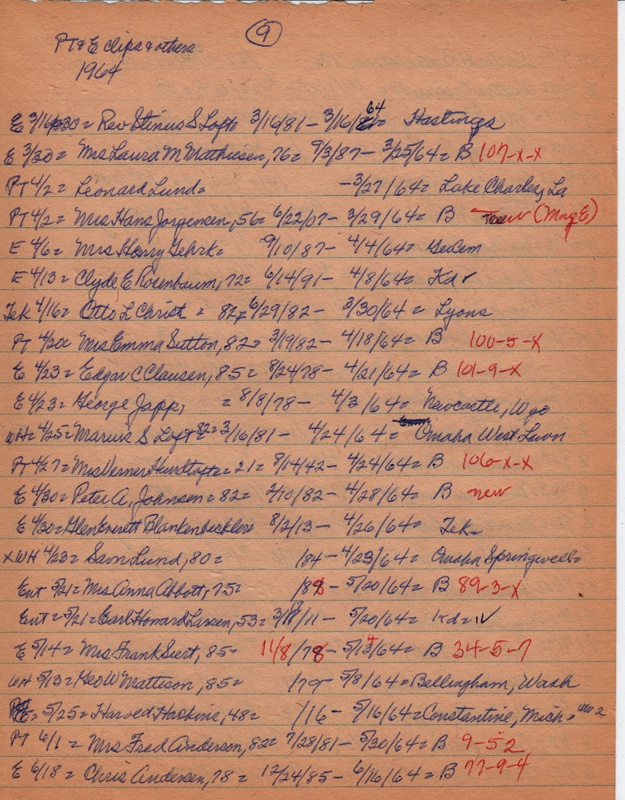 9
PT & E clips & others
1964
E 3/16 = Rev Stinus S Loft 3/16/81 - 3/16/64 = Hastings
E 3/30 = Mrs Laura M Mathiesen, 76 = 9/3/87 - 3/25/64 = B 107-x-x
PT 4/2 = Leonard Lund = - 3/27/64 = Lake Charles, La
PT 4/2 = Mrs Hans Jorgensen, 56 = 6/22/07 - 3/29/64 = B new (Mag E)
E 4/6 = Mrs Henry Gehrk = 9/10/87 - 4/4/64 = GerCem
E 4/13 = Clyde E Rosenbaum, 72 = 6/14/91 - 4/8/64 = Kd v
Tek 4/16 = Otto L Christ = 82 = 6/29/82 - 3/30/64 = Lyons
PT 4/20 = Mrs Emma Sutton, 82 = 3/19/82 - 4/18/64 = B 100-5-x
E 4/23 = Edgar C Clausen, 85 = 8/24/78 - 4/21/64 = B 101-9-x
E 4/23 = George Japp, = 8/8/78 - 4/3/64 = Newcastle, Wyo
WH = 4/25 = Marius S Loft = 82 = 3/16/81 - 4/24/64 = Omaha West Lawn
PT 4/27 = Mrs Verner Hundtofte = 21 = 8/14/42 - 4/24/64 = B 106-x-x
E 4/30 = Peter A, Johnsen = 82 = 2/10/82 - 4/28/64 = B new
E 4/30 = Glen Everett 8/2/13 - 4/26/64 = Tek =
x WH 4/23 = Sam Lund, 80 = /84 - 4/23/64 = Omaha Springwell =
Ent 5/21 = Mrs Anna Abbott, 75 = /88 - 5/20/64 = B 89-3-x
Ent = 5/21 = Earl Howard Larsen, 53 = 3/13/11 - 5/20/64 = Kd = v
E 5/14 = Mrs Frank Siert, 85 = 11/8/78 - 5/14/64 = B 34-5-7
WH 5/13 = Geo W Mattison, 85 = /79 - 5/8/64 = Bellingham, Wash
E = 5/25 = Harold Hoskins, 48 = /16 - 5/16/64 = Constantine, Mich = WW 2
PT 6/1 = Mrs Fred Andersen, 82 = 7/28/81 - 5/30/64 = B 9-52
E 6/18 = Chris Andersen, 78 = 12/24/85 - 6/16/64 = B 77-9-4